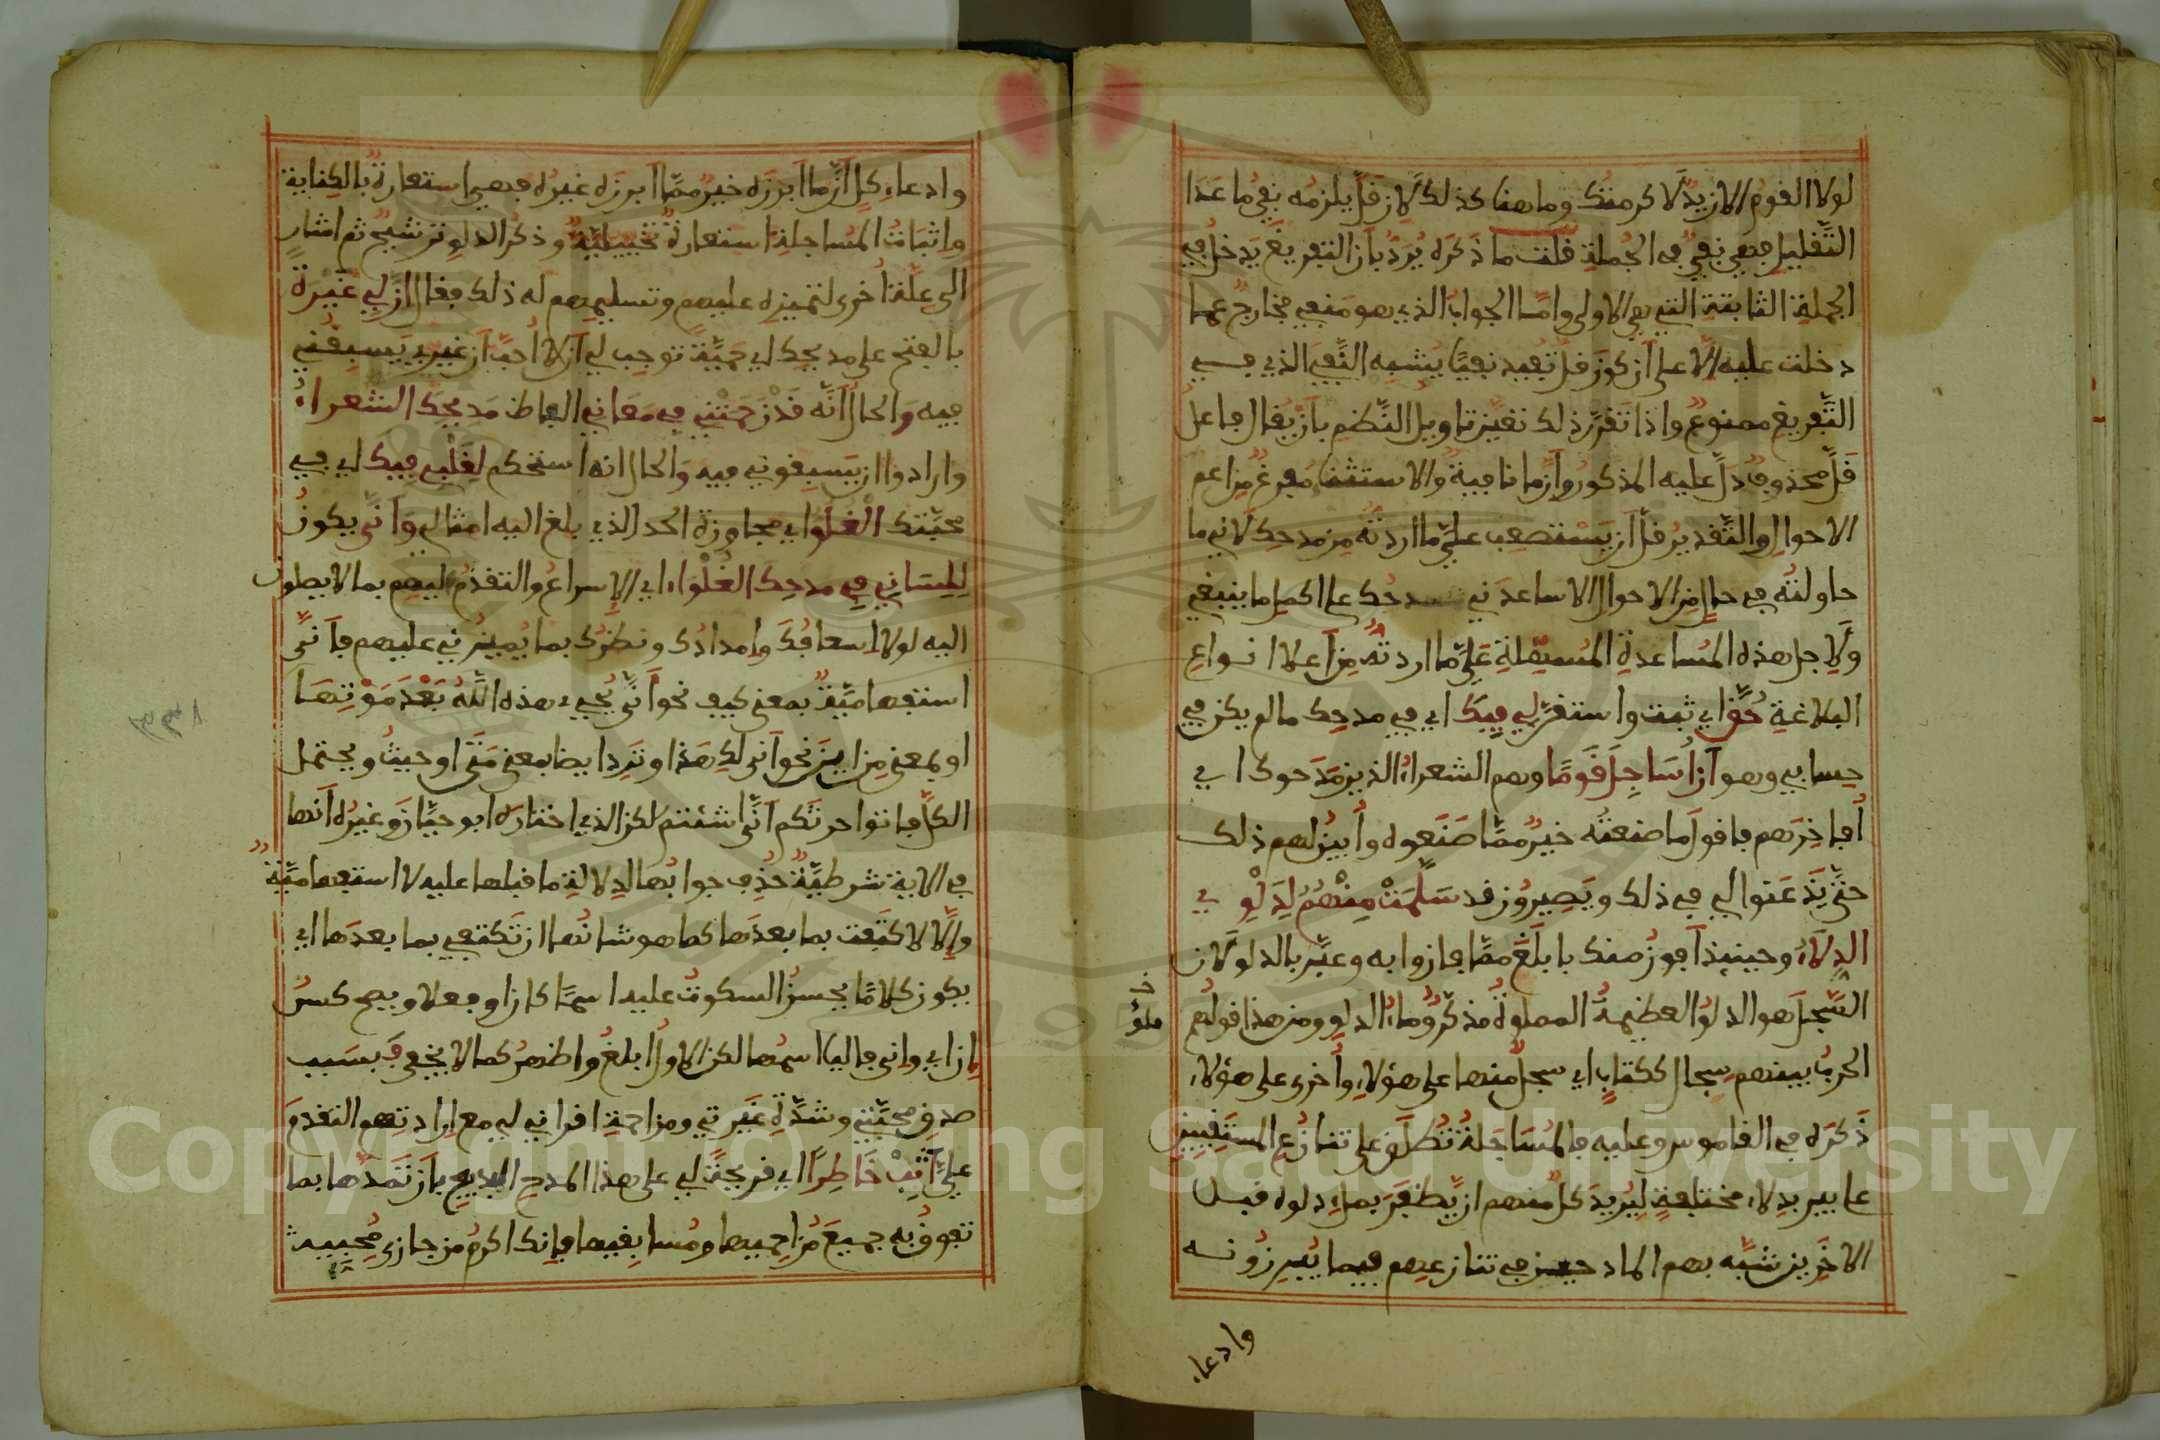 لولا القوم الا زيد لاكرمتك وما هنا كذلك لان قل يلزمه نفي ما عدا
التقليل فهي نفي في الجملة قلت ما ذكره يرد بان التفريغ يدخل في
الجملة الثابتة التي هي الاولى واما الجواب الذي هو منفي فخارج عما
دخلت عليه الا على ان كون قل تفيد نفيا يشبه النفي الذي في
التفريغ ممنوع واذا تقرر ذلك تعين تاويل النظم بان يقال فاعل
قل محذوف دل عليه المذكور وان ما نافية والاستثنا مفرغ من اعم
الاحوال والتقدير قل ان يستصعب علي ما اردته من مدحك لاني ما
حاولته في حال من الاحوال الا ساعدني مدحك على اكمل ما ينبغي
ولاجل هذه المساعدة المسهلة علي ما اردته من اعلا انواع
البلاغة حق اي ثبت واستقر لي فيك اي في مدحك ما لم يكن في
حسابي وهو ان اساجل قوما وهم الشعراء الذين مدحوك اي
افاخرهم فاقول ما صنعته خير مما صنعوه وابين لهم ذلك
حتى يذعنوا لي في ذلك ويصيرون قد سلمت منهم لدلوي
الدلاء وحينيذ افوز منك بابلغ مما فازوا به وعبر بالدلو لان
السجل هو الدلو العظيمة المملوة مذكر وماء الدلو ومن هذا قولهم
ملؤ
الحرب بينهم سجال ككتاب اي سجل منها على هؤلاء واخرى على هؤلاء
ذكره في القاموس وعليه فالمساجلة تطلق على تنازع المستقيين
على بير بدلاء مختلفة ليريد كل منهم ان يظفر بملء دلوه قبل
الاخرين شبه بهم المادحين في تنازعهم فيما يبرزونه
وادعاء
وادعاء كل ان ما ابرزه خير مما ابرزه غيره فهي استعارة بالكناية
واثبات المساجلة استعارة تخييلية وذكر الدلو ترشيح ثم اشار
الى علة اخرى لتميزه عليهم وتسليمهم له ذلك فقال ان لي غيرة
بالفتح على مديحك اي حمية توجب لي ان لا احب ان غيري يسبقني
فيه والحال انه قد زحمتني في معاني الفاظ مديحك الشعراء
وارادوا ان يسبقوني فيه والحال انه استحكم لقلبي فيك اي في
محبتك الغلو اي مجاوزة الحد الذي بلغ اليه امثالي واني يكون
للساني في مدحك الغلواء اي الاسراع والتقدم اليهم بما لا يصلون
اليه لولا اسعافك وامدادك ونظرك بما يميزني عليهم فانى
استفهامية بمعنى كيف نحو انى يحيي هذه الله بعد موتها
او بمعنى من اين نحو انى لك هذا وترد ايضا بمعنى متى او حيث ويحتمل
الكل فاتوا حرثكم انى شئتم لكن الذي اختاره ابو حيان وغيره انها
في الاية شرطية حذف جوابها لدلالة ما قبلها عليه لا استفهامية
والا لاكتفت بما بعدها كما هو شانها ان تكتفي بما بعدها اي
يكون كلاما يحسن السكوت عليه اسما كان او فعلا ويصح كسر
ان اي واني فاليا اسمها لكن الاول ابلغ واظهر كما لا يخفى فبسبب
صدق محبتي وشدة غيرتي ومزاحمة اقراني لي مع ارادتهم التقدم
علي اثب خاطرا اي قريحة لي على هذا المدح البديع بان تمدها بما
تفوق به جميع مزاحميها ومسابقيها فانك اكرم من جازى محبيه